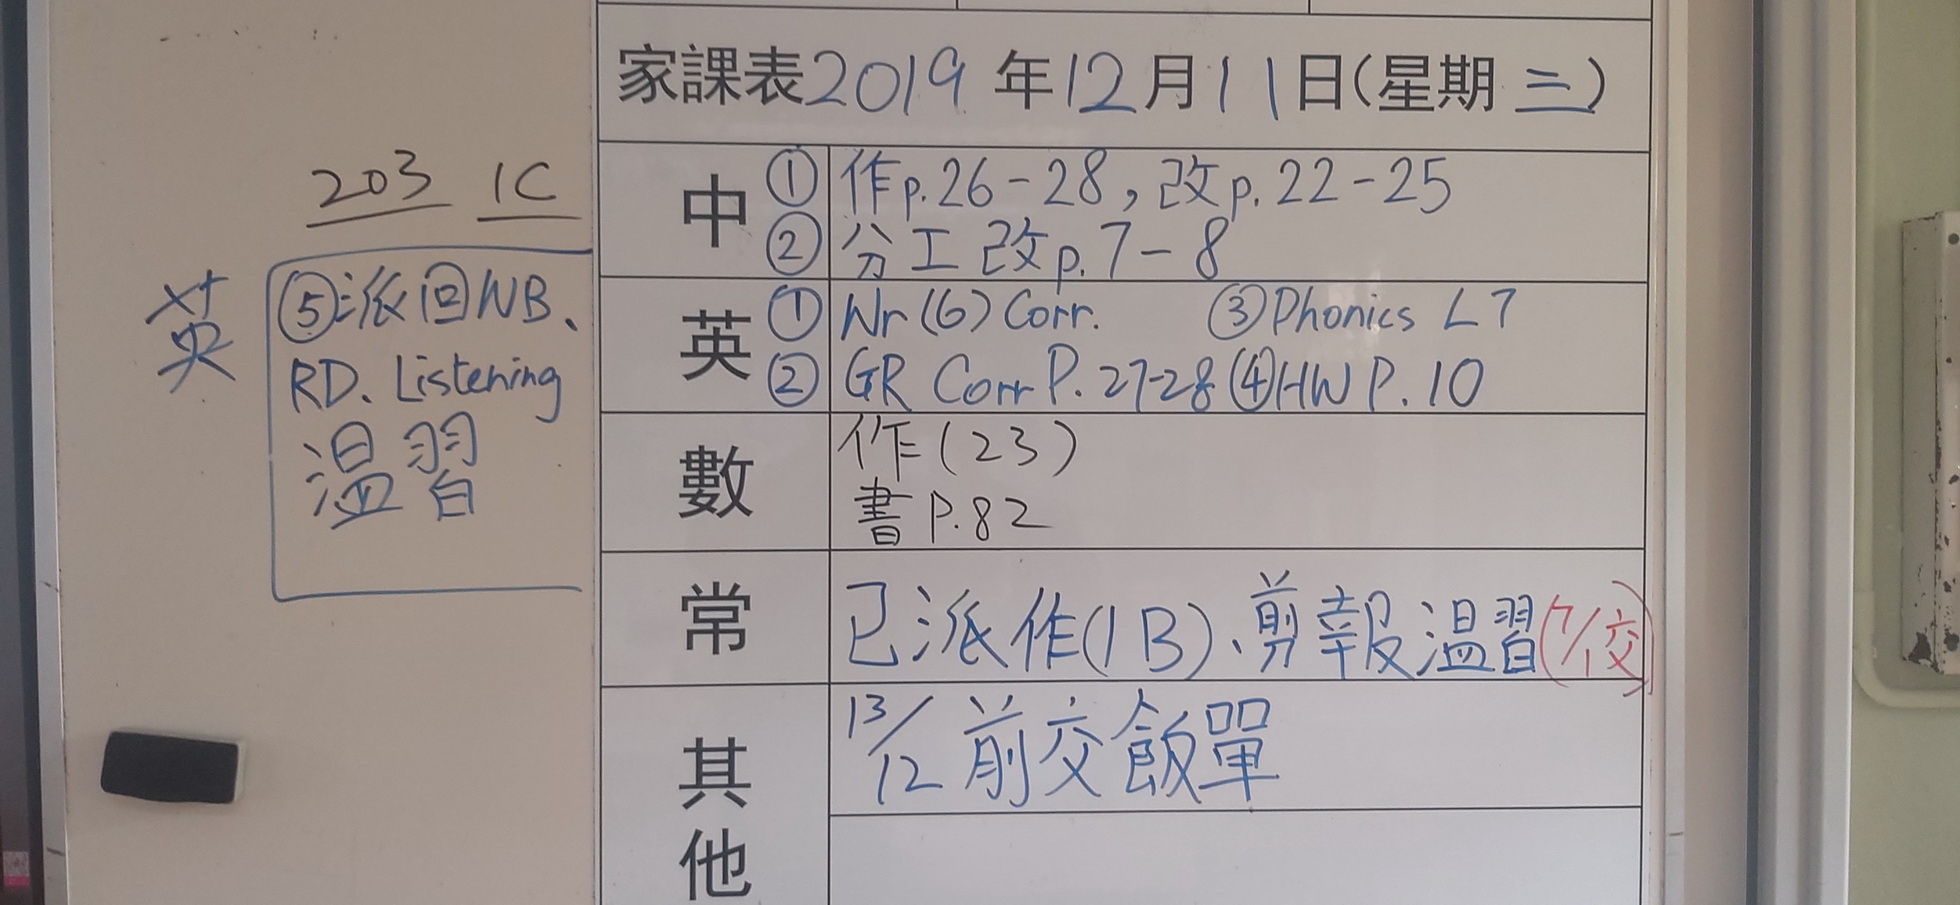 家課表2019年12月11日(星期三)
203 1C
中 ① 作p.26-28，改p.22-25
② 分工改p.7-8
英 ① Wr(6) Corr. ③Phonics L7
② GR Corr P.27-28 ④HW P.10
英 ⑤派回WB、
RD. Listening
溫習
數 作(23)
書 P.82
常 已派作(1B)、剪報溫習(7/1交)
其他 13/12前交飯單